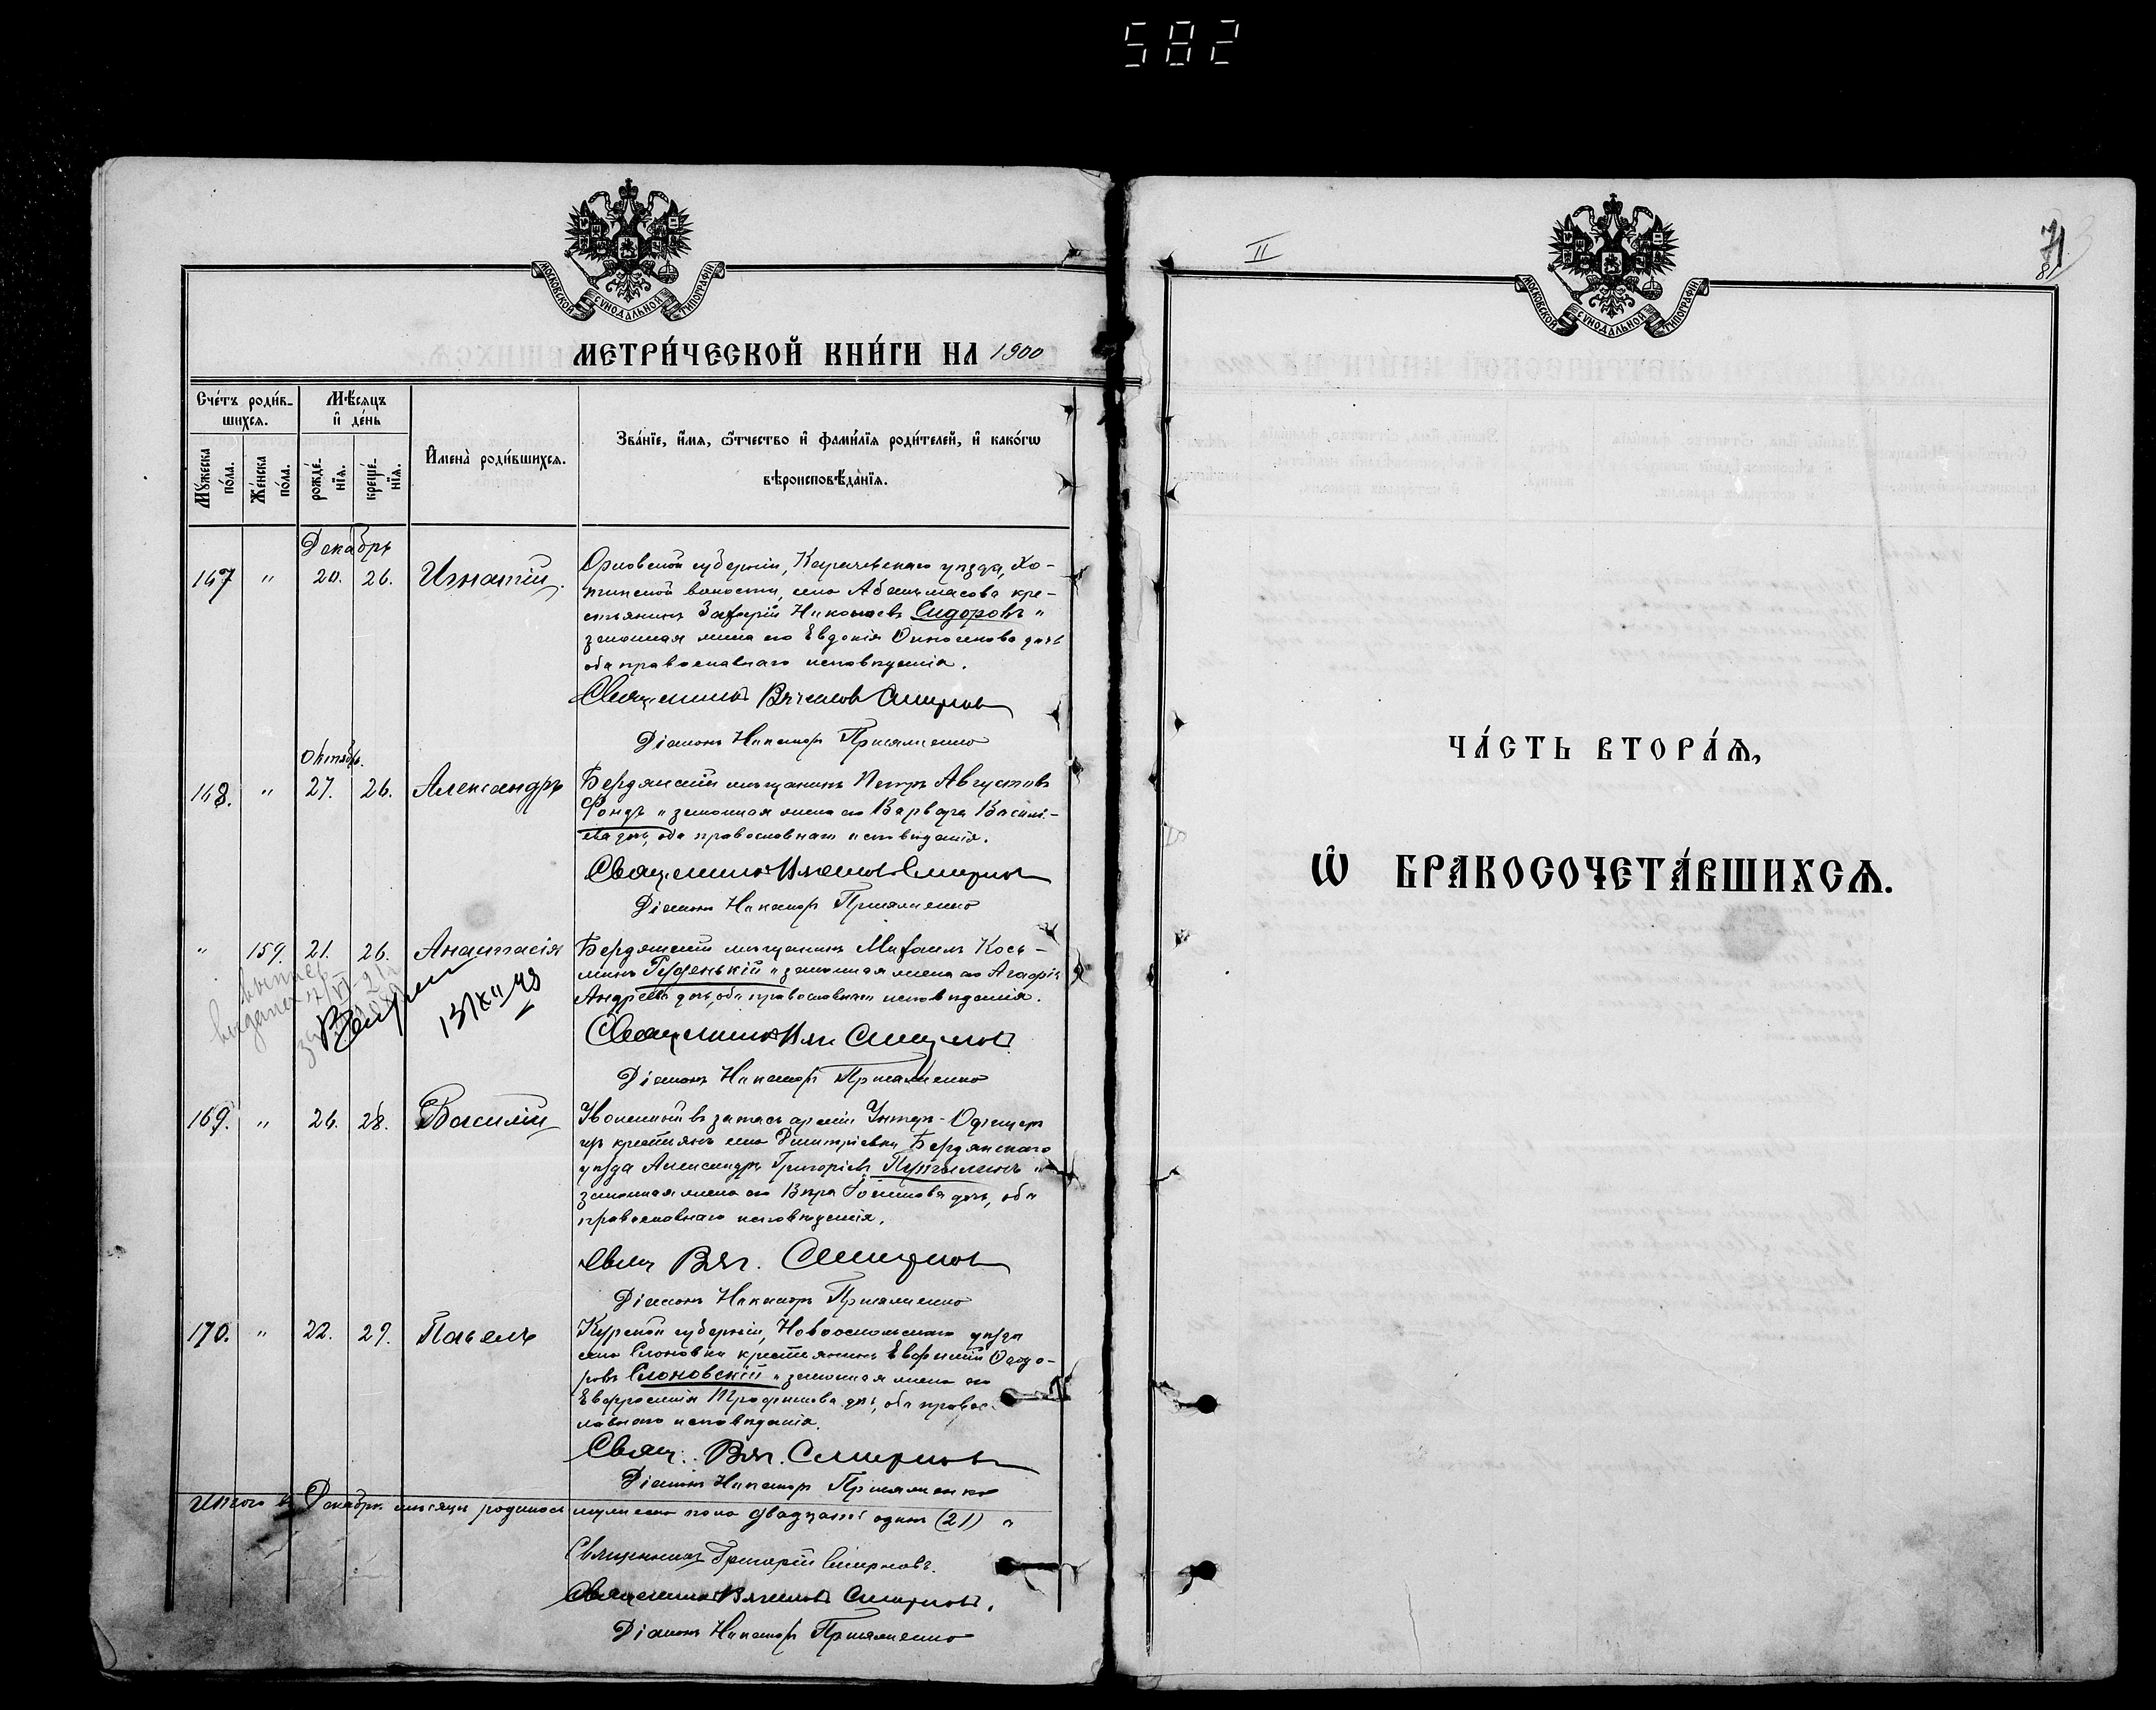 582
МОСКОВСКОЙ СѴНОДАЛЬНОЙ ТИПОГРАФІИ
МЕТРИ́ЧЕСКОЙ КНИ́ГИ НА 1900
Сче́тъ роди́в-
шихсѧ.
Мѣ́сѧцъ
и҆ де́нь
Мꙋ́жеска
по́ла.
Же́нска
по́ла.
рожде́-
нїѧ.
креще́-
нїѧ.
И҆мена̀ роди́вшихсѧ.
Зва́нїе, и҆́мѧ, ѻ҆́тчество и҆ фами́лїѧ роди́телей, и҆ како́гѡ
вѣроисповѣ́данїѧ.
Декабрь
167 " 20. 26. Игнатій.
Орловской губерніи, Карачевскаго уѣзда, Хо-
тинской волости, села Абельмасова кре-
стьянинъ Захарій Николаевъ Сидоровъ и
законная жена его Евдокія дочь
оба православнаго исповѣданія.
Священникъ Вячеславъ Смирновъ
Діаконъ Никаноръ
Октябрь.
168. " 27. 26. Александръ
Бердянскій мѣщанинъ Петръ Августовъ
Фондъ и законная жена его Варвара Василі-
ева дочь, оба православнаго исповѣданія.
Священникъ Вячеславъ Смирновъ
Діаконъ Никаноръ
" 159. 21. 26. Анастасія
Бердянскій мѣщанинъ Михаилъ Кось-
минъ и законная жена его Агафія
Андреева дочь, оба православнаго исповѣданія.
13/XII 43
Священникъ Вяч. Смирновъ
Діаконъ Никаноръ
169. " 26. 28. Василій
Уволенный въ запасъ арміи Унтеръ-Офицеръ
изъ крестьянъ села Дмитріевки Бердянскаго
уѣзда Александръ Григоріевъ и
законная жена его Вѣра дочь, оба
православнаго исповѣданія.
Свящ. Вяч. Смирновъ
Діаконъ Никаноръ
170. " 22. 29. Павелъ
Курской губерніи, Новооскольскаго уѣзда
села Слоновки крестьянинъ Евфимій Ѳеодо-
ровъ Слоновскій и законная жена его
Евфросинія Трофимова дочь, оба правос-
лавнаго исповѣданія.
Свящ. Вяч. Смирновъ
Діаконъ Никаноръ
Итого въ Декабрѣ мѣсяцѣ родилось мужеска пола двадцать одинъ (21) и
Священникъ Григорій Смирновъ.
Священникъ Вячеславъ Смирновъ.
Діаконъ Никаноръ
II
71
81
МОСКОВСКОЙ СѴНОДАЛЬНОЙ ТИПОГРАФІИ
ЧА́СТЬ ВТОРА́Ѧ,
Ѽ БРАКОСОЧЕТА́ВШИХСѦ.